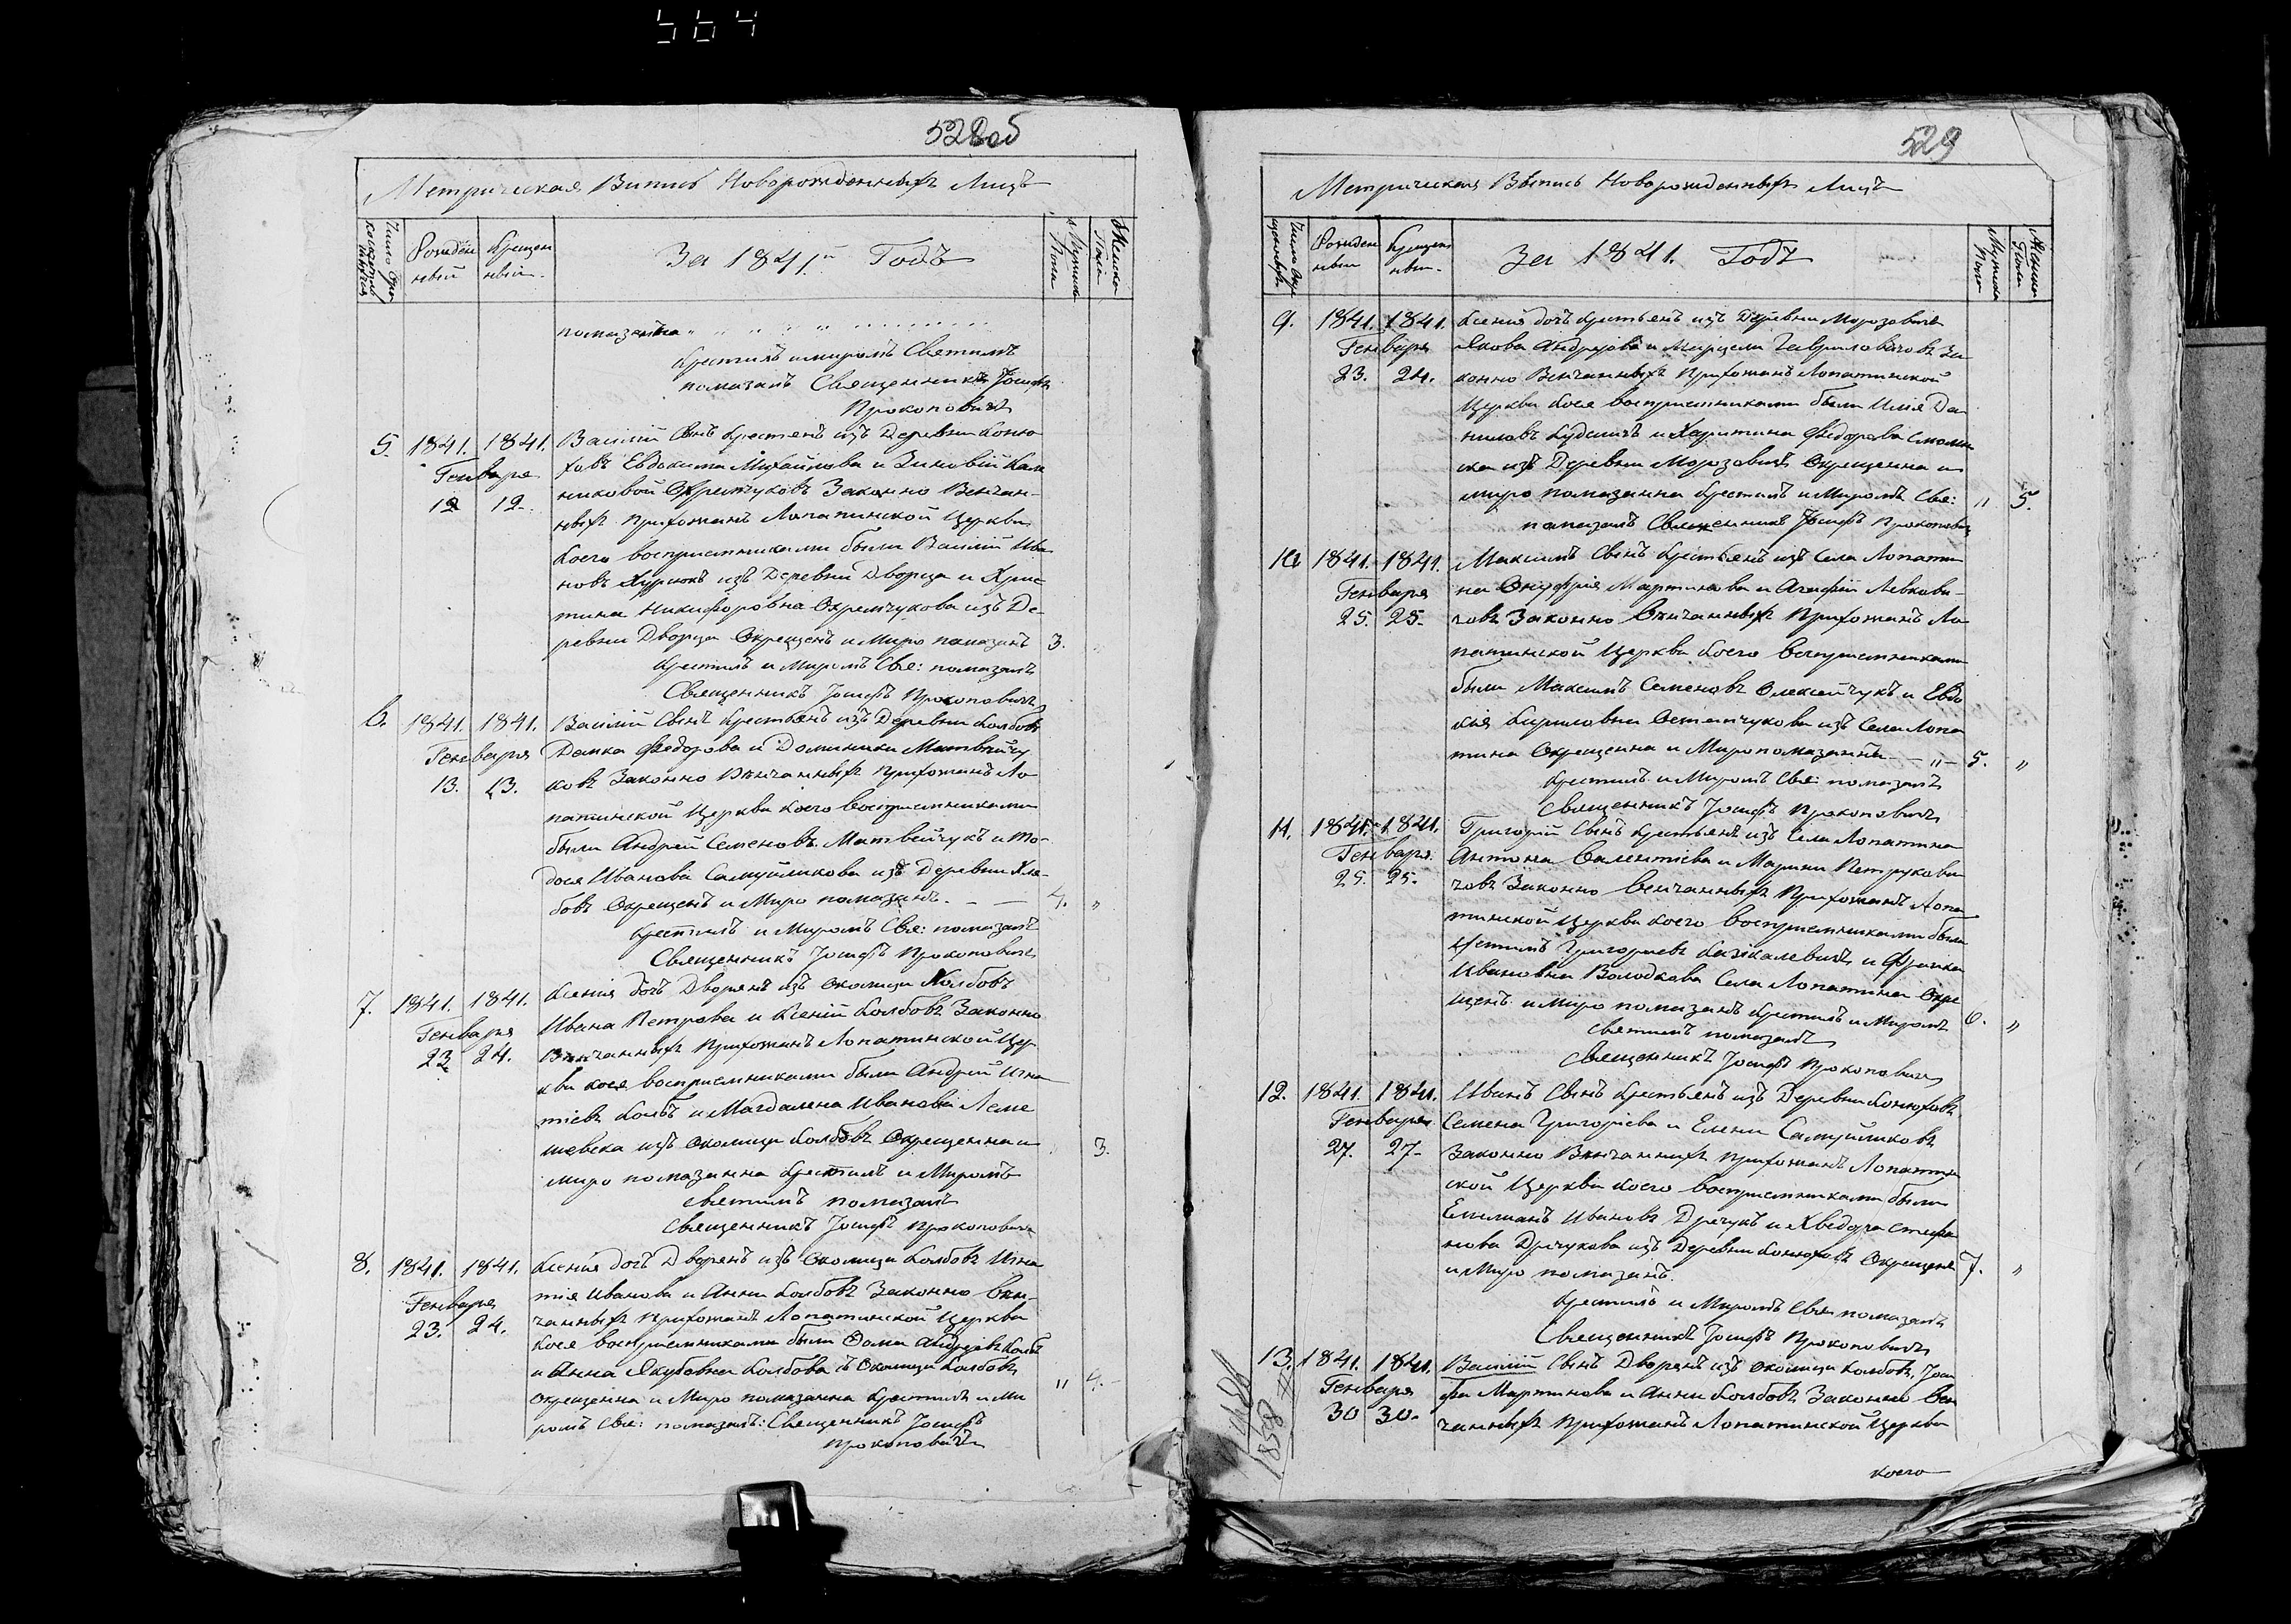 564
528 об
Метрическая Випись Новорожденныхъ Лицъ
Рожден ный
Крещен ный.
За 1841й Годъ
Мужеска Пола
Женска Пола
помазанна
Крестилъ имиромъ Светимъ
помазалъ Священникъ Іосифъ
Прокоповичъ
5. 1841. 1841. Василій Синъ Крестьянъ изъ Деревни Коню
Генваря ховъ Евдокима Михайлова и Зиновіи
12 12. Охремчуковъ Законно Венчан-
ныхъ прихожанъ Лопатинской Церкви
коего воспріемниками были Василій Ива
новъ изъ Деревни Дворца и Хрис
тина Никифоровна Охремчукова изъ Де-
ревни Дворца Окрещенъ и Миро помазанъ 3. "
Крестилъ и Миромъ Свя: помазалъ
Священникъ Іосифъ Прокоповичъ
6. 1841. 1841. Василій Синъ Крестьянъ изъ Деревни Колбовъ
Генваря Демка Федорова и Доминики Матвейчу
13. 13. ковъ Законно Вѣнчанныхъ прихожанъ Ло-
патинской Церкви коего воспріемниками
были Андрей Семеновъ Матвейчукъ и Фо-
дося Иванова Самуйликова изъ Деревни
бовъ Окрещенъ и Миро помазанъ. — — 4. "
Крестилъ и Миромъ Свя: помазалъ
Священникъ Іосифъ Прокоповичъ
7. 1841. 1841. Ксенія дочь Дворянъ изъ Околицы Колбовъ
Генваря Ивана Петрова и Ксеніи Колбовъ Законно
23 24. Вѣнчанныхъ прихожанъ Лопатинской Цер
кви коея воспріемниками были Андрей Игна
тіевъ Колбъ и Магдалена Иванова Леме
шевска изъ Околицы Колбовъ Окрещенна и 3.
миро помазанна Крестилъ и Миромъ
святимъ помазалъ
Священникъ Іосифъ Прокоповичъ
8. 1841. 1841. Ксенія дочь Дворянъ изъ Околицы Колбовъ Игна
Генваря тія Иванова и Анни Колбовъ Законно Вен-
23. 24. чанныхъ прихожанъ Лопатинской Церкви
коея воспріемниками были Фома Андреевъ Колбъ
и Анна Якубовна Колбова съ Околицы Колбовъ
окрещенна и Миро помазанна Крестилъ и Ми " 4.
ромъ Свя: помазалъ: Священникъ Іосифъ
Прокоповичъ
529
Метрическая Выпись Новорожденныхъ Лицъ
Рожден ныи
Крещен ныи.
За 1841. Годъ
Мужеска Пола
Женска Пола
9. 1841. 1841. Ксенія дочь Крестьянъ изъ Деревни Морозовичъ
Генваря Якова Андреева и Марцели Гавриловичовъ За-
23. 24. конно Венчанныхъ Прихожанъ Лопатинской
Церкви коея воспріемниками были Илія Да
ниловъ и Харитина Федорова
изъ Деревни Морозовичъ Окрещенна и
миро помазанна Крестилъ и Миромъ Свя: " 5.
помазалъ Священникъ Іосифъ Прокоповичъ
10 1841. 1841. Максимъ Синъ Крестьянъ изъ Села Лопати
Генваря на Онуфрія Мартинова и Агафіи Левкови-
25. 25. човъ Законно Вѣнчанныхъ Прихожанъ Ло
патинской Церкви коего воспріемниками
были Максимъ Семеновъ Олексейчукъ и Евдо
кія Кириловна Остапчукова изъ Села Лопа
тина Окрещенна и Миропомазанна — " — 5. "
Крестилъ и Миромъ Свя: помазалъ
Священникъ Іосифъ Прокоповичъ
11. 1841. 1841. Григорій Синъ Крестьянъ изъ Села Лопатина
Генваря. Антона Валентіева и Марини Петрукови
25. 25. човъ Законно Венчанныхъ Прихожанъ Лопа
тинской Церкви коего воспріемниками были
Григоріевъ и
Ивановна Володкова Села Лопатина Окре
щенъ и миро помазанъ Крестилъ и Миромъ 6. "
Святимъ помазалъ
Священникъ Іосифъ Прокоповичъ
12. 1841. 1841. Иванъ Синъ Крестьянъ изъ Деревни Конюховъ
Генваря Семена Григоріева и Елени Самуйликовъ
27. 27. Законно Вѣнчанныхъ прихожанъ Лопатин
ской Церкви коего воспріемниками были
Емельянъ Ивановъ Дричукъ и Хведора Стефа
нова Дричукова изъ Деревни Конюховъ Окрещенъ 7. "
и Миро помазанъ.
Крестилъ и Миромъ Свя помазалъ
Священникъ Іосифъ Прокоповичъ
13. 1841. 1841. Василій Синъ Дворянъ изъ околицы Колбовъ, Іоси
Генваря фа Мартинова и Анни Колбовъ Законно Вен
30 30. чанныхъ прихожанъ Лопатинской Церкви
коего